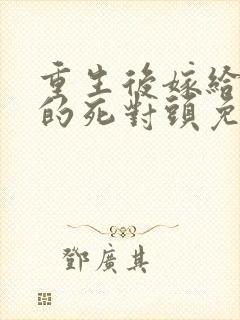 重生後嫁給
的死對頭免
鄧廣其